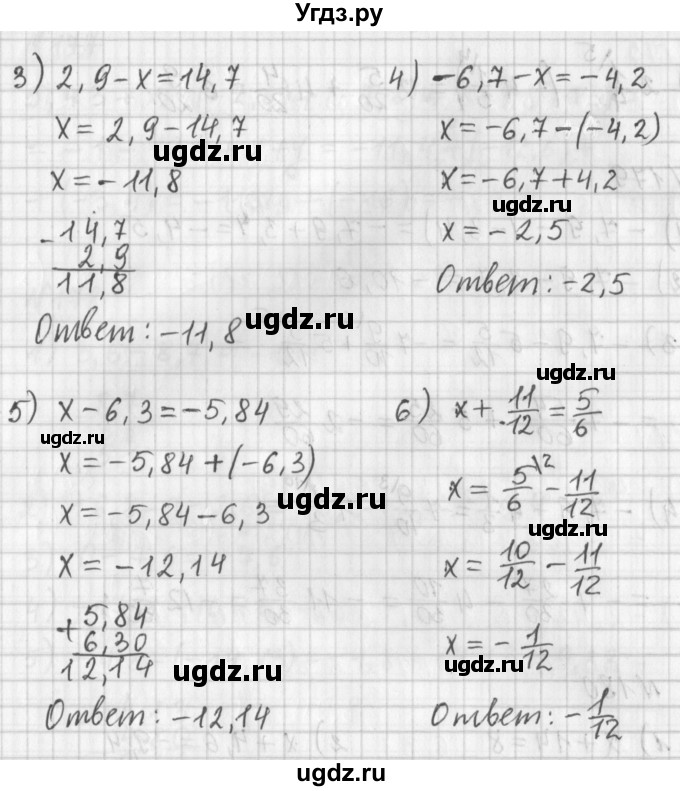 Угдз.ру
3) 2,9 - x = 14,7
x = 2,9 - 14,7
ugdz.ru
x = -11,8
- 14,7
2,9
11,8
Ответ: -11,8
ugdz.ru
4) -6,7 - x = -4,2
x = -6,7 - (-4,2)
x = -6,7 + 4,2
ugdz.ru
x = -2,5
Ответ: -2,5
5) x - 6,3 = -5,84
ugdz.ru
x = -5,84 + (-6,3)
ugdz.ru
x = -5,84 - 6,3
x = -12,14
+ 5,84
6,30
12,14
ugdz.ru
Ответ: -12,14
ugdz.ru
6) x + 11/12 = 5/6
x = 5/6 \2 - 11/12
ugdz.ru
x = 10/12 - 11/12
x = - 1/12
ugdz.ru
Ответ: - 1/12
ugdz.ru